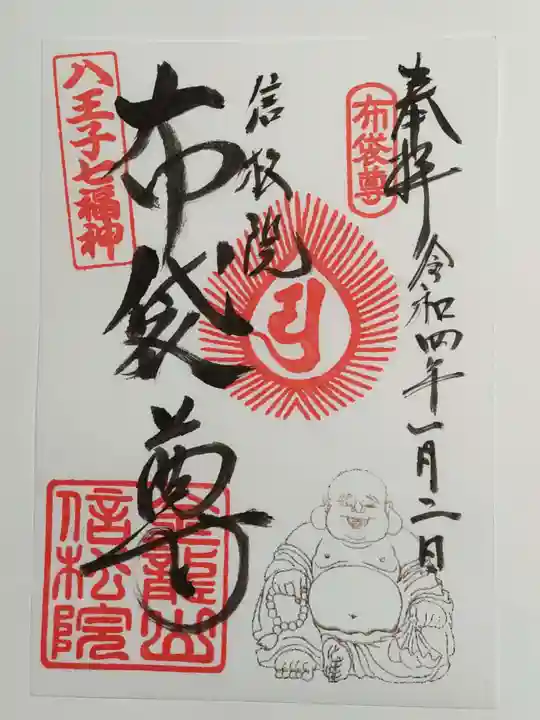 奉拝
令和四年一月二日
布袋尊
信松院
布袋尊
八王子七福神
金龍山
信松院